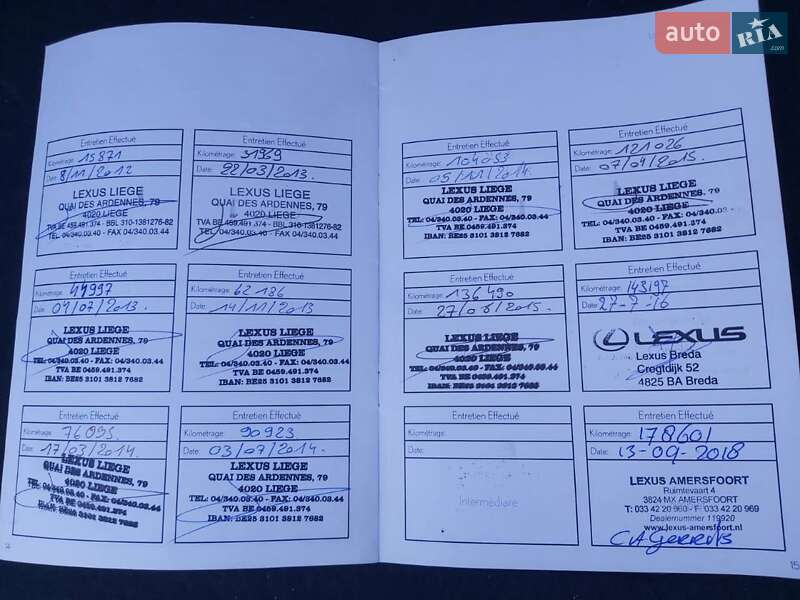 auto RIA.com
Entretien Effectué
Kilométrage: 15871
Date: 8/11/2012
LEXUS LIEGE
QUAI DES ARDENNES, 79
4020 LIEGE
TVA BE 459.491.374 - BBL 310-1381276-82
TEL. 04/340.03.40 - FAX 04/340.03.44
Entretien Effectué
Kilométrage: 31969
Date: 22/03/2013.
LEXUS LIEGE
QUAI DES ARDENNES, 79
4020 LIEGE
TVA BE 459.491.374 - BBL 310-1381276-82
TEL. 04/340.03.40 - FAX 04/340.03.44
Entretien Effectué
Kilométrage: 44997
Date: 04/07/2013.
LEXUS LIEGE
QUAI DES ARDENNES, 79
4020 LIEGE
TEL: 04/340.03.40 - FAX: 04/340.03.44
TVA BE 0459.491.374
IBAN: BE25 3101 3812 7682
Entretien Effectué
Kilométrage: 62136
Date: 14/11/2013
LEXUS LIEGE
QUAI DES ARDENNES, 79
4020 LIEGE
TEL: 04/340.03.40 - FAX: 04/340.03.44
TVA BE 0459.491.374
IBAN: BE25 3101 3812 7682
Entretien Effectué
Kilométrage: 76095.
Date: 17/03/2014.
LEXUS LIEGE
QUAI DES ARDENNES, 79
4020 LIEGE
TEL: 04/340.03.40 - FAX: 04/340.03.44
TVA BE 0459.491.374
IBAN: BE25 3101 3812 7682
Entretien Effectué
Kilométrage: 90923
Date: 03/07/2014.
LEXUS LIEGE
QUAI DES ARDENNES, 79
4020 LIEGE
TEL: 04/340.03.40 - FAX: 04/340.03.44
TVA BE 0459.491.374
IBAN: BE25 3101 3812 7682
Entretien Effectué
Kilométrage: 104053
Date: 05/11/2014.
LEXUS LIEGE
QUAI DES ARDENNES, 79
4020 LIEGE
TEL: 04/340.03.40 - FAX: 04/340.03.44
TVA BE 0459.491.374
IBAN: BE25 3101 3812 7682
Entretien Effectué
Kilométrage: 121026
Date: 07/04/2015.
LEXUS LIEGE
QUAI DES ARDENNES, 79
4020 LIEGE
TEL: 04/340.03.40 - FAX: 04/340.03.
TVA BE 0459.491.374
IBAN: BE25 3101 3812 7682
Entretien Effectué
Kilométrage: 136490
Date: 27/08/2015.
LEXUS LIEGE
QUAI DES ARDENNES, 79
4020 LIEGE
TEL: 04/340.03.40 - FAX: 04/340.03.44
TVA BE 0459.491.374
IBAN: BE25 3101 3812 7682
Entretien Effectué
Kilométrage: 143197
Date: 27-7-16
LEXUS
Lexus Breda
Cregtdijk 52
4825 BA Breda
Entretien Effectué
Kilométrage:
Date:
Intermédiare
Entretien Effectué
Kilométrage: 178601
Date: 13-09-2018
LEXUS AMERSFOORT
Ruimtevaart 4
3824 MX AMERSFOORT
T: 033 42 20 960 - F: 033 42 20 969
Dealernummer 119920
www.lexus-amersfoort.nl
15